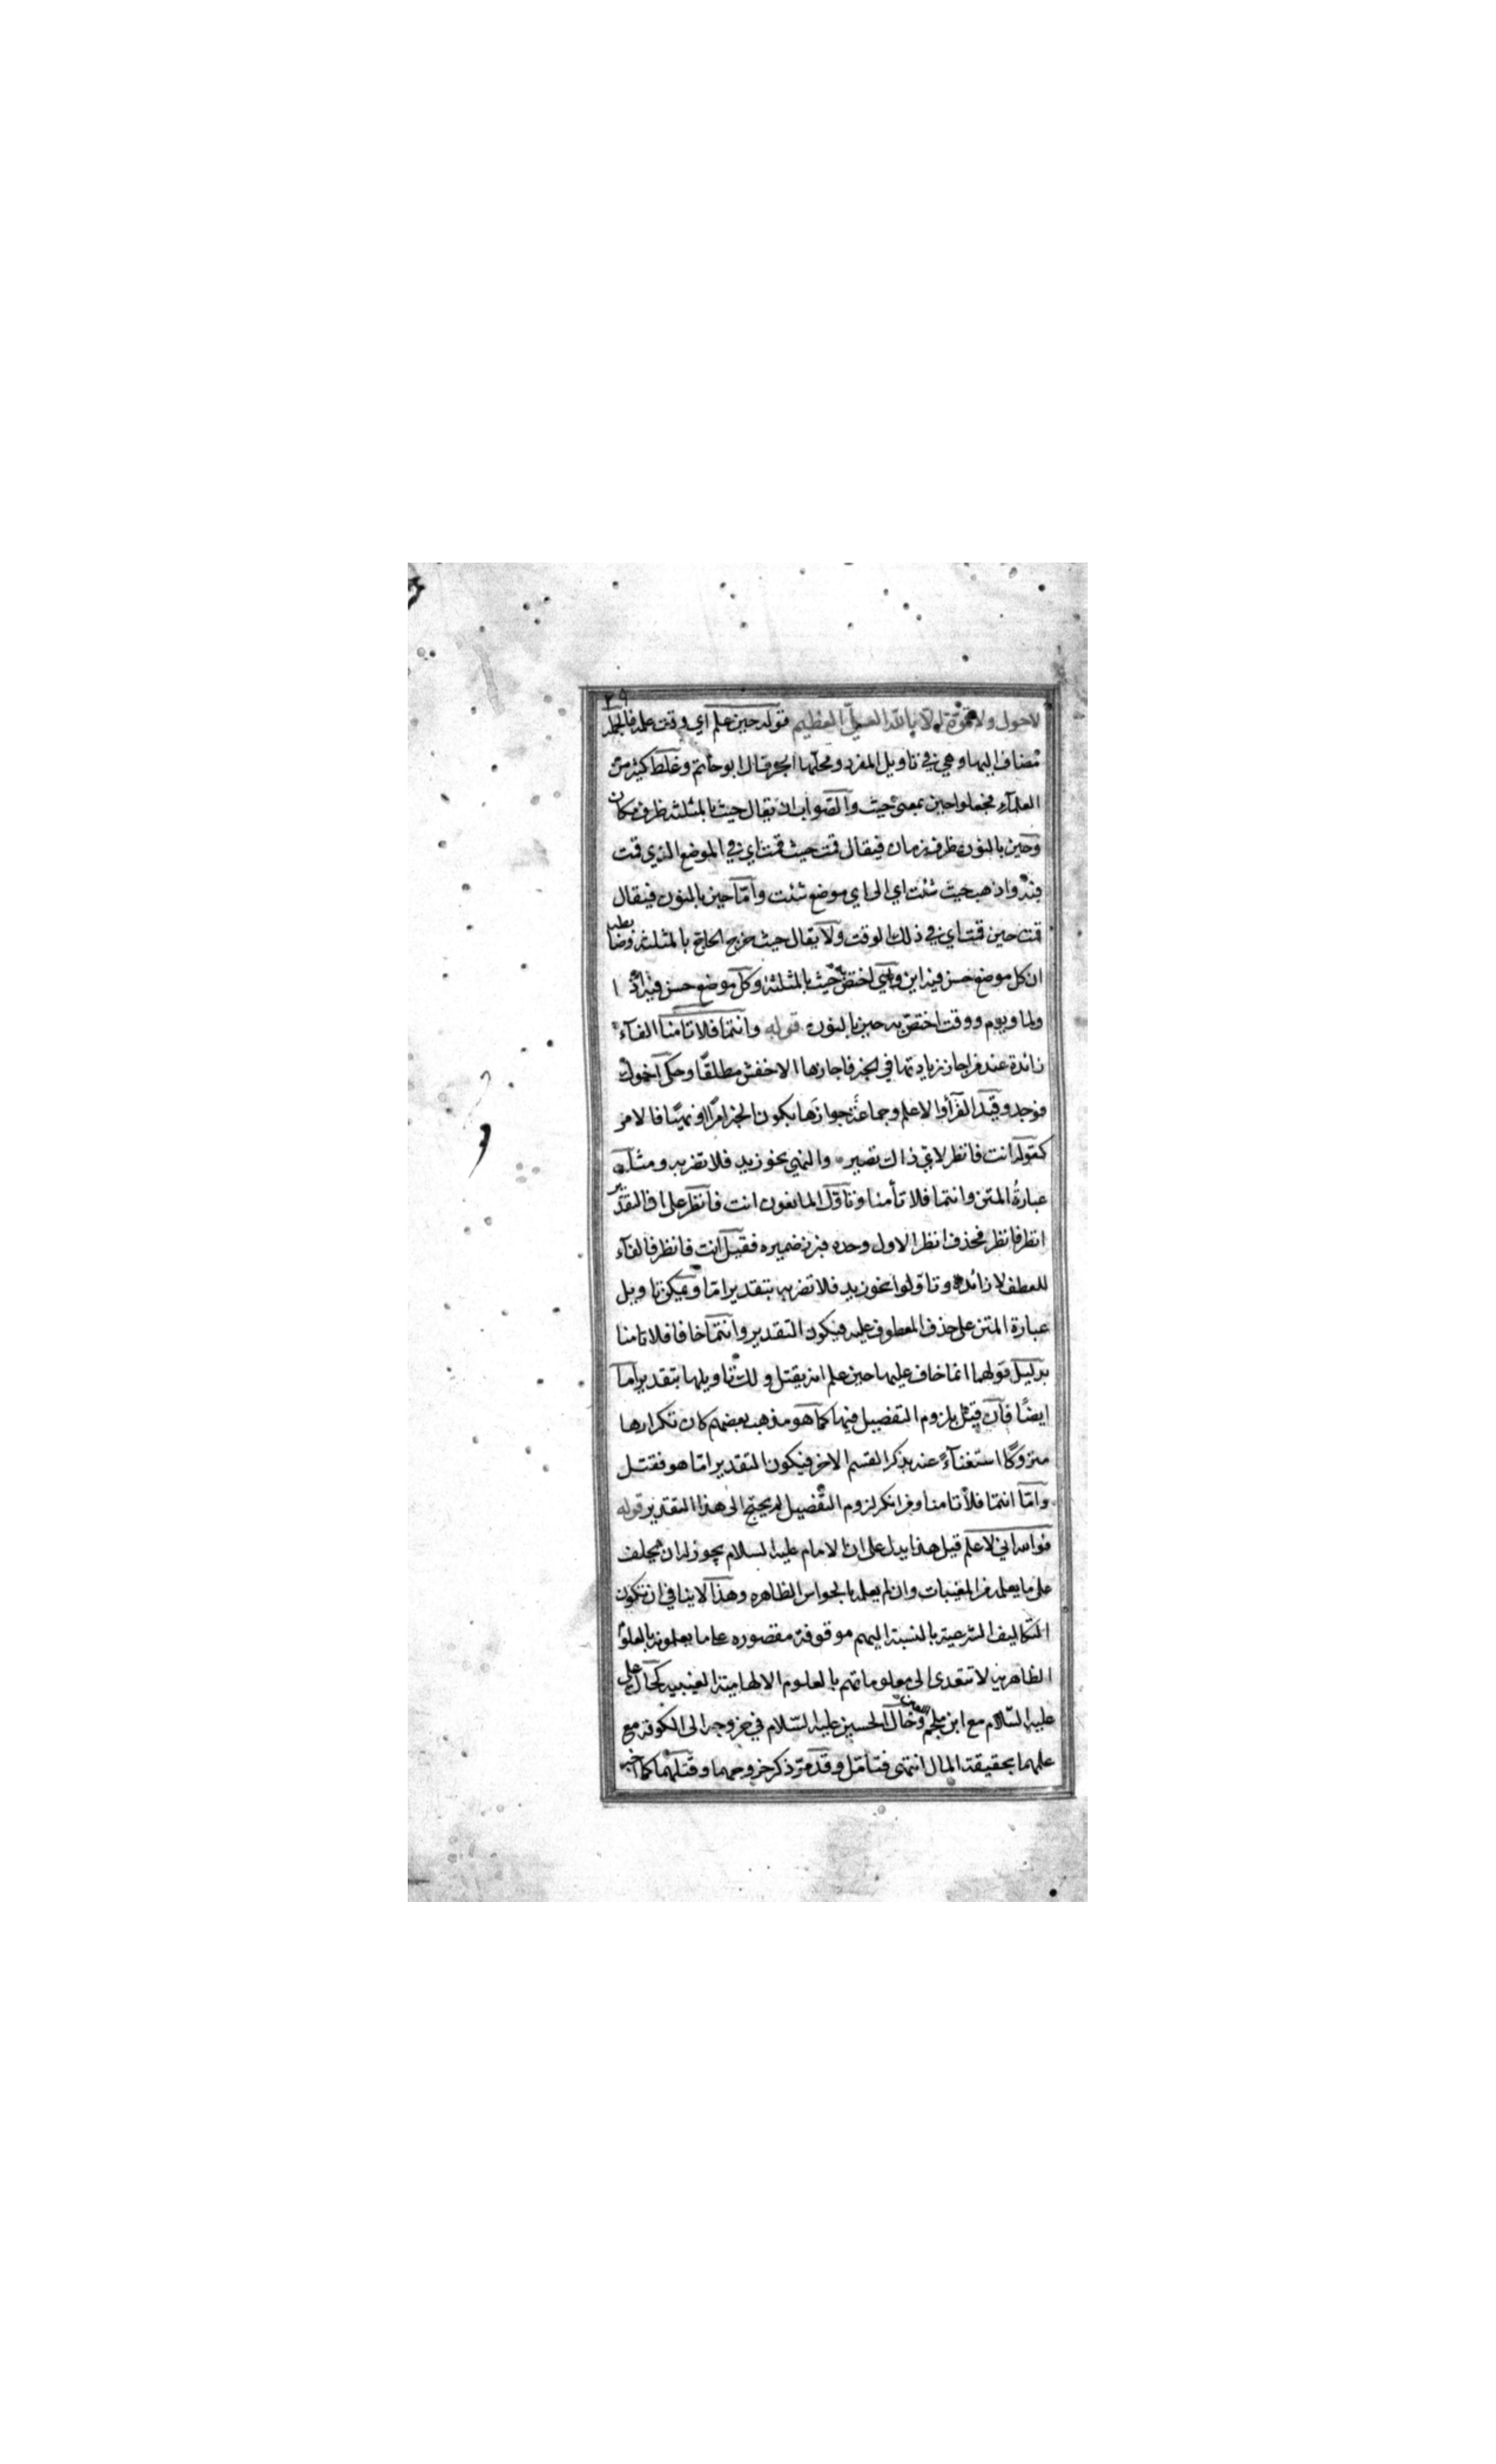 ٢٩
لا حول ولا قوة الا بالله العلي العظيم قوله حين علم اي وقت علمه فالجملة
مضاف اليها وهي في تاويل المفرد ومحلها الجر قال ابو حاتم وغلط كثير من
العلمآء فجعلوا حين بمعنى حيث والصواب ان يقال حيث بالمثلثه ظرف مكان
وحين بالنون ظرف زمان فيقال قمت حيث قمت اي في الموضع الذي قمت
فيه واذهب حيث شئت اي الى اي موضع شئت وامّا حين بالنون فيقال
قمت حين قمت اي في ذلك الوقت ولا يقال حيث خرج الحاج بالمثلثه وضابطه
ان كل موضع حسن فيه اين واي اختص به حيث بالمثلثة وكل موضع حسن فيه اذا
ولما ويوم ووقت اختصّ به حين بالنون قوله وانتما فلا تامنا الفآء
زائدة عند من اجاز زيادتها في الخبر فاجازها الاخفش مطلقًا وحكى اخوك
فوجد وقيّد الفرّآ والاعلم وجماعة جوازها بكون الخبر امرًا او نهيًا فالامر
كقوله انت فانظر لاي ذاك تصير والنهي نحو زيد فلا تضربه ومثله
عبارةُ المتن وانتما فلا تأمنا وتاوّل المانعون انت فانظر على ان التقدير
انظر فانظر فحذف انظر الاول وحده فبرز ضميره فقيل انت فانظر فالفآء
للعطف لا زائده وتاوّلوا نحو زيد فلا تضربه بتقدير امّا ويمكن تاويل
عبارة المتن على حذف المعطوف عليه فيكون التقدير وانتما خافا فلا تامنا
بدليل قولهما انما خاف عليهما حين علم انه يقتل ولك تاويلها بتقدير امّا
ايضًا فان قيل بلزوم التفصيل فيها كما هو مذهب بعضهم كان تكرارها
متروكًا استغنآءً عنه بذكر القسم الاخر فيكون التقدير امّا هو فقتل
وامّا انتما فلا تامنا ومن انكر لزوم التفصيل لم يحتج الى هذا التقدير قوله
فوالله اني لاعلم قيل هذا يدل على ان الامام عليه السلام يجوز له ان يحلف
على ما يعلمه من المغيبات وان لم يعلمه بالحواس الظاهره وهذا لا ينافي ان تكون
التكاليف الشرعية بالنسبة اليهم موقوفة مقصوره على ما يعلمونه بالعلوم
الظاهرية لا تتعدى الى معلوماتهم بالعلوم الالهامية الغيبيه كحال علي
عليه السّلام مع ابن ملجم وحال الحسين عليه السّلام في خروجه الى الكوفة مع
علمهما بحقيقة المال انتهى فتأمّل وقد مرّ ذكر خروجهما وقتلهما كما اخبر